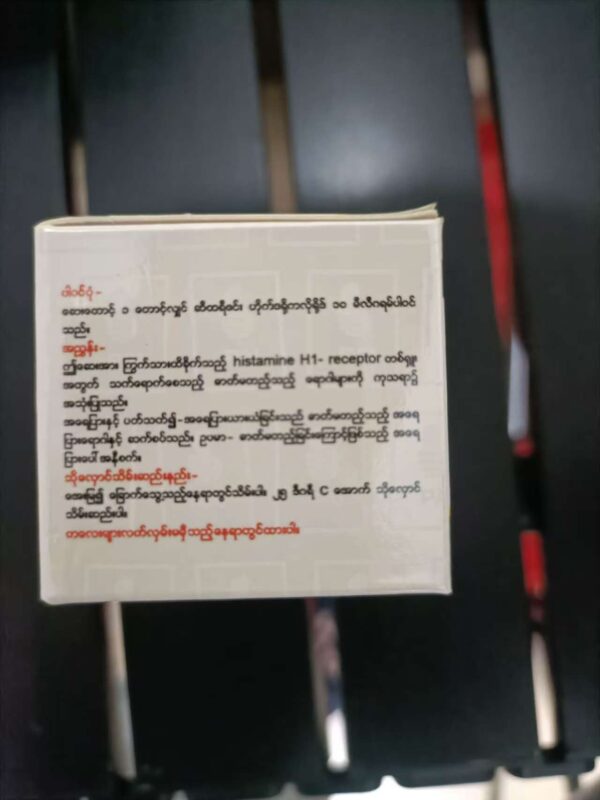 ပါဝင်ပုံ -
ဆေးတောင့် ၁ တောင့်လျှင် ဆီထရီဇင်း ဟိုက်ဒရိုကလိုရိုဒ် ၁၀ မီလီဂရမ်ပါဝင်
သည်။
အညွှန်း-
ဤဆေးအား ကြွက်သားထိခိုက်သည့် histamine H1- receptor တစ်ရှူး
အတွက် သက်ရောက်စေသည့် ဓာတ်မတည့်သည့် ရောဂါများကို ကုသရာ၌
အသုံးပြုသည်။
အရေပြားနှင့် ပတ်သက်၍-အရေပြားယားယံခြင်းသည် ဓာတ်မတည့်သည့် အရေ
ပြားရောဂါနှင့် ဆက်စပ်သည်။ ဥပမာ- ဓာတ်မတည့်ခြင်းကြောင့်ဖြစ်သည့် အရေ
ပြားပေါ် အနီစက်။
သိုလှောင်သိမ်းဆည်းနည်း-
အေးမြ၍ ခြောက်သွေ့သည့်နေရာတွင်သိမ်းပါ။ ၂၅ ဒီဂရီ C အောက် သိုလှောင်
သိမ်းဆည်းပါ။
ကလေးများလက်လှမ်းမမှီသည့်နေရာတွင်ထားပါ။